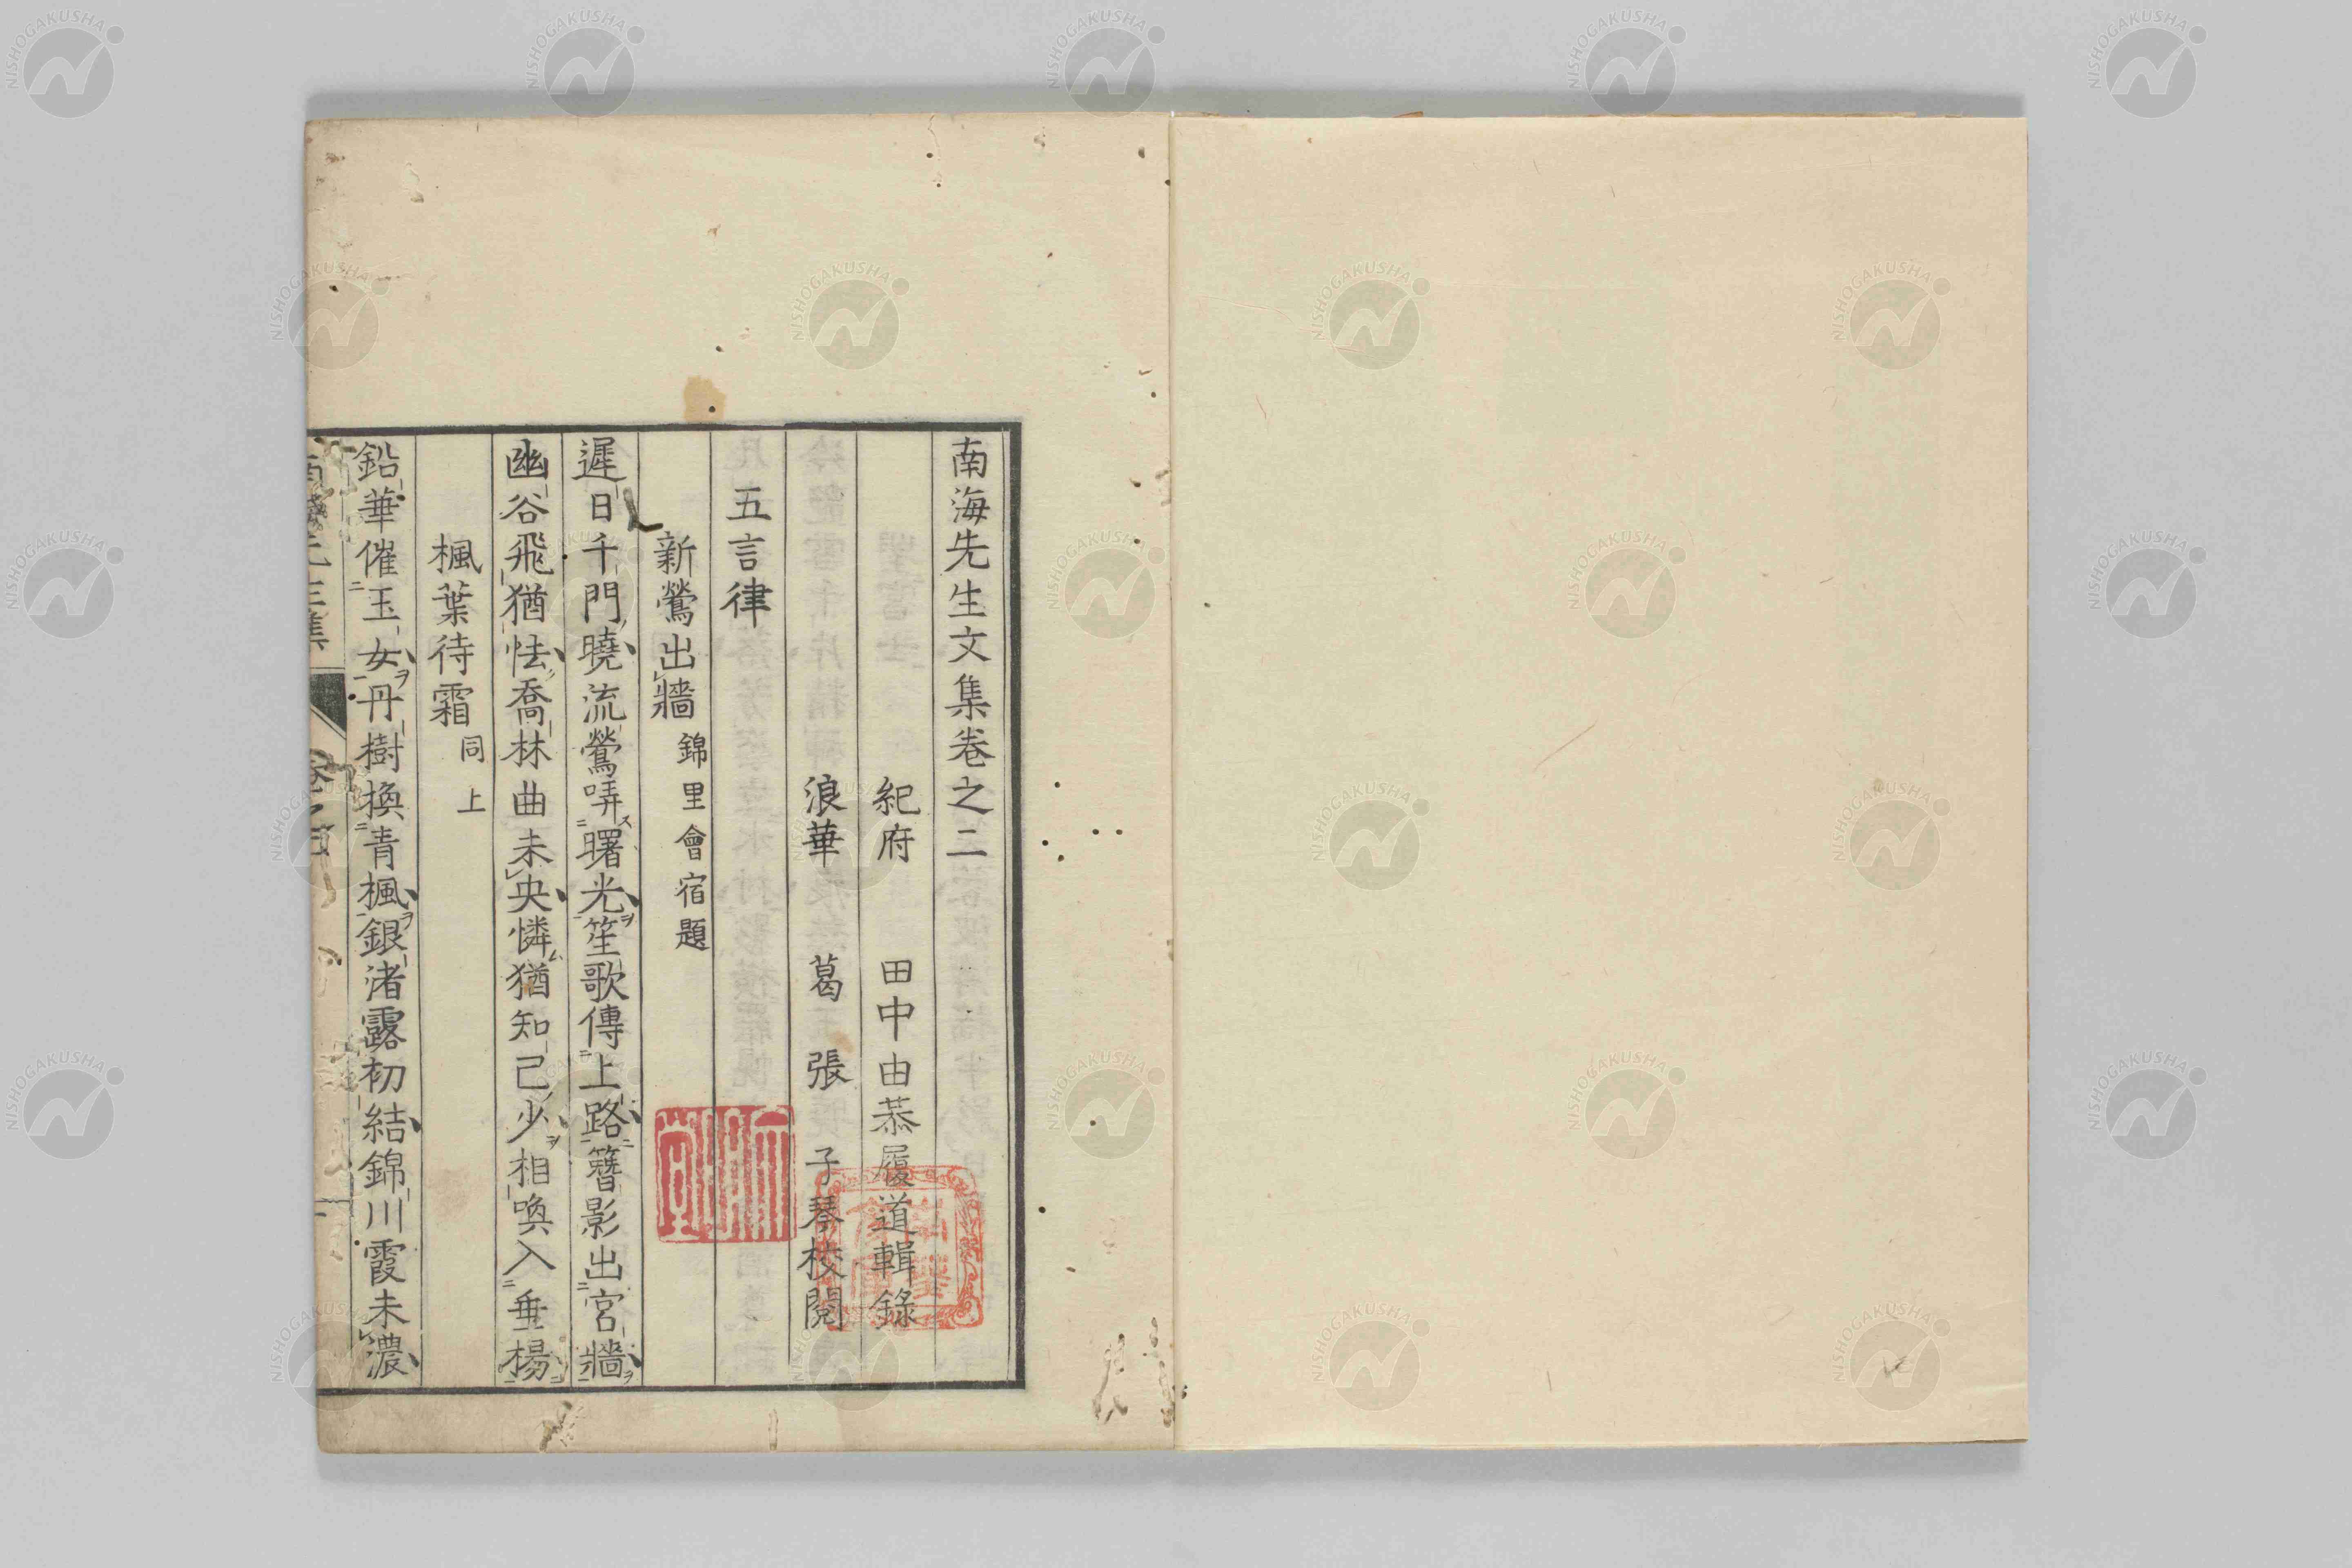 南海先生文集卷之二
紀府　田中由恭履道輯錄
浪華　葛　張　子琴校閱
五言律
新鶯出牆 錦里會宿題
遲日千門曉流鶯哢曙光笙歌傳上路簪影出宮牆
幽谷飛猶怯喬林曲未央憐猶知己少相喚入垂楊
楓葉待霜 同上
鉛華催玉女丹樹換青楓銀渚露初結錦川霞未濃
NISHOGAKUSHA